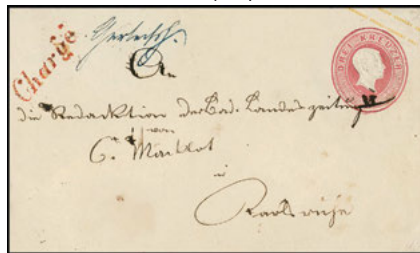 Chargé
An
die Redaktion der Bad. Landeszeitung
von
C. Macklot
in
Karlsruhe
DREI KREUZER